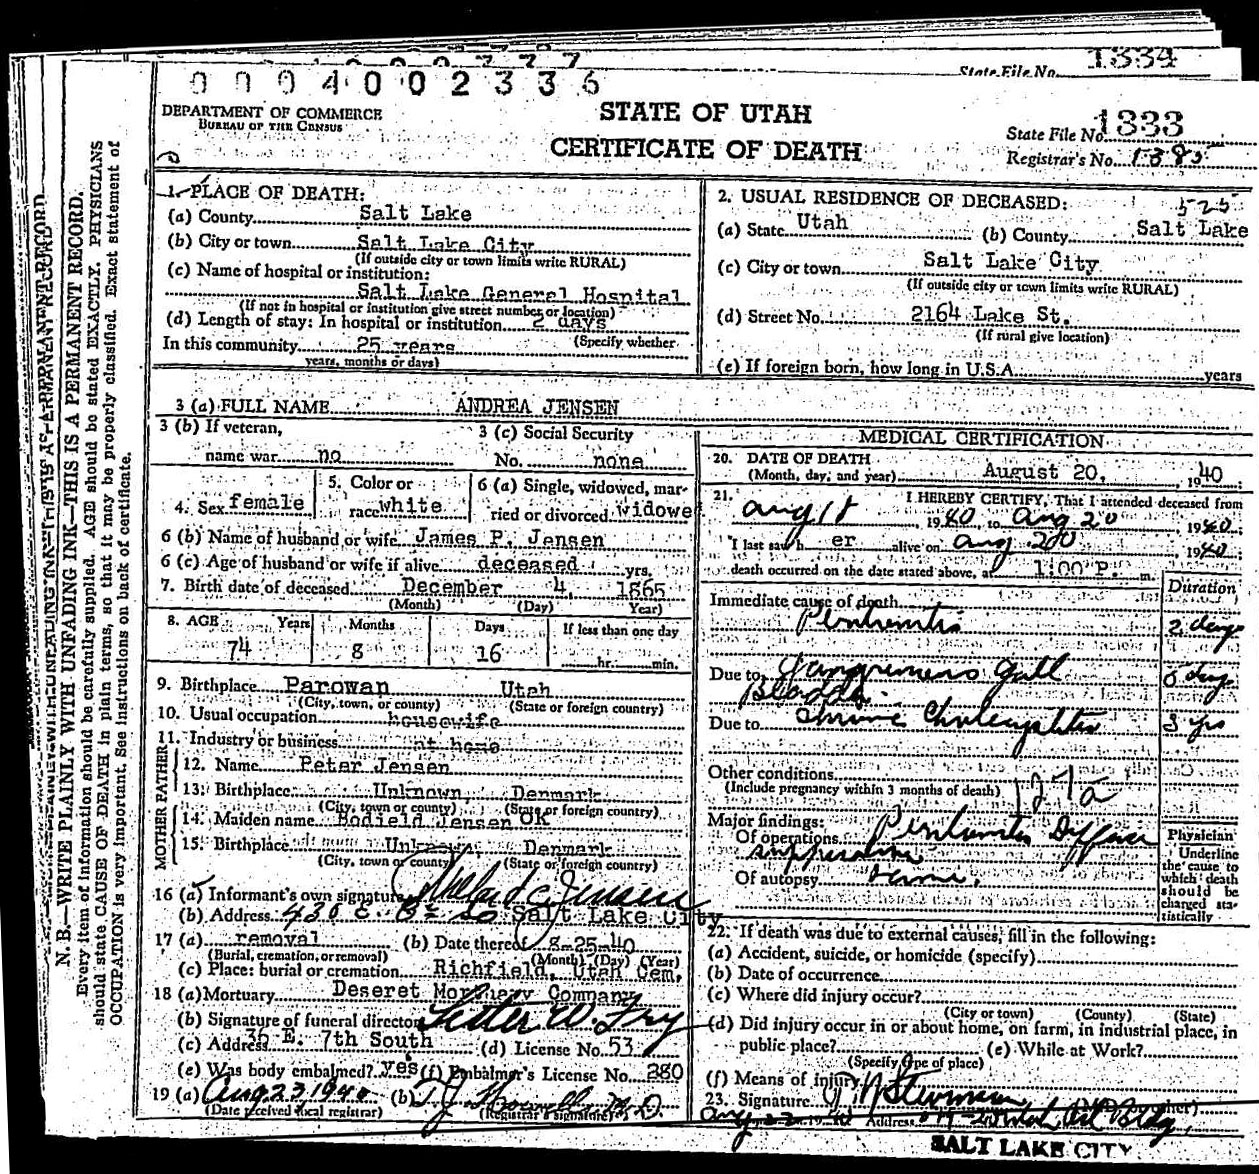 1334
State File No.
0004002336
DEPARTMENT OF COMMERCE
BUREAU OF THE CENSUS
STATE OF UTAH
CERTIFICATE OF DEATH
State File No. 1333
Registrar's No. 1385
N. B.—WRITE PLAINLY WITH UNFADING INK—THIS IS A PERMANENT RECORD.
Every item of information should be carefully supplied. AGE should be stated EXACTLY. PHYSICIANS
should state CAUSE OF DEATH in plain terms, so that it may be properly classified. Exact statement of
OCCUPATION is very important. See instructions on back of certificate.
1. PLACE OF DEATH:
(a) County Salt Lake
(b) City or town Salt Lake City
(If outside city or town limits write RURAL)
(c) Name of hospital or institution:
Salt Lake General Hospital
(If not in hospital or institution give street number or location)
(d) Length of stay: In hospital or institution 2 days
(Specify whether
In this community 25 years
years, months or days)
2. USUAL RESIDENCE OF DECEASED: 525
(a) State Utah (b) County Salt Lake
(c) City or town Salt Lake City
(If outside city or town limits write RURAL)
(d) Street No. 2164 Lake St.
(If rural give location)
(e) If foreign born, how long in U.S.A. years
3 (a) FULL NAME ANDREA JENSEN
3 (b) If veteran,
name war no
3 (c) Social Security
No. none
4. Sex female
5. Color or
race white
6 (a) Single, widowed, mar-
ried or divorced widowe
6 (b) Name of husband or wife James P. Jensen
6 (c) Age of husband or wife if alive deceased yrs.
7. Birth date of deceased December 4, 1865
(Month) (Day) Year)
8. AGE Years Months Days If less than one day
74 8 16 hr. min.
9. Birthplace Parowan Utah
(City, town, or county) (State or foreign country)
10. Usual occupation housewife
11. Industry or business at home
FATHER
12. Name Peter Jensen
13. Birthplace Unknown Denmark
(City, town or county) (State or foreign country)
MOTHER
14. Maiden name Bodield Jensen OK
15. Birthplace Unknown Denmark
(City, town or county) (State or foreign country)
16 (a) Informant's own signature Jensen
(b) Address So Salt Lake City
17 (a) removal (b) Date thereof 8-25-40
(Burial, cremation, or removal) (Month) (Day) (Year)
(c) Place: burial or cremation Richfield, Utah Cem.
18 (a) Mortuary Deseret Mortuary Company
(b) Signature of funeral director Lester W. Fry
(c) Address 36 E. 7th South (d) License No. 53
(e) Was body embalmed? yes (f) Embalmer's License No. 280
19 (a) Aug 23 1940 (b) T. J. M D
(Date received local registrar) (Registrar's signature)
MEDICAL CERTIFICATION
20. DATE OF DEATH
(Month, day, and year) August 20, 1940
21. I HEREBY CERTIFY, That I attended deceased from
Aug 18 1940 to Aug 20 1940
I last saw h er alive on Aug 20 1940
death occurred on the date stated above, at 1:00 P. m.
Duration
Immediate cause of death
Peritonitis 2 days
Due to Gangrenous gall days
Bladder
Due to Chronic Cholecystitis 3 yrs
Other conditions 127a
(Include pregnancy within 3 months of death)
Major findings:
Of operations Peritonitis Diffuse
suppurative
Of autopsy same.
Physician
Underline
the cause to
which death
should be
charged sta-
tistically
22. If death was due to external causes, fill in the following:
(a) Accident, suicide, or homicide (specify)
(b) Date of occurrence
(c) Where did injury occur?
(City or town) (County) (State)
(d) Did injury occur in or about home, on farm, in industrial place, in
public place? (e) While at Work?
(Specify type of place)
(f) Means of injury
23. Signature
Aug 22 1940 Address Bldg.
SALT LAKE CITY